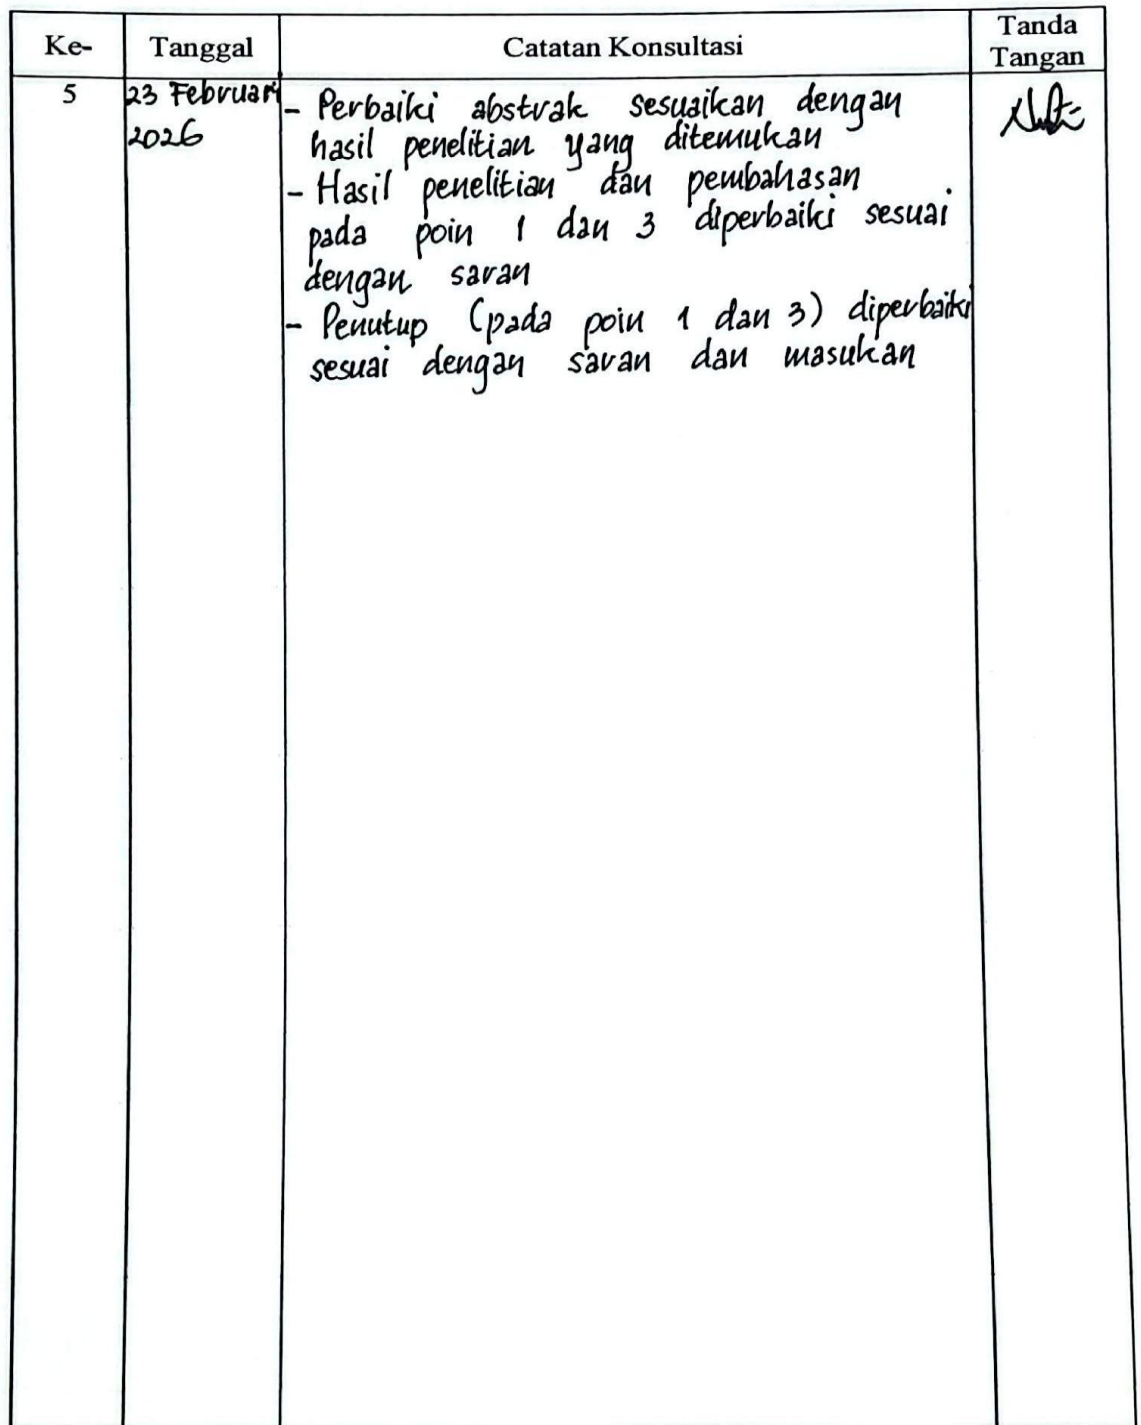 Ke- Tanggal Catatan Konsultasi Tanda Tangan
5 23 Februari 2026
- Perbaiki abstrak sesuaikan dengan
hasil penelitian yang ditemukan
- Hasil penelitian dan pembahasan
pada poin 1 dan 3 diperbaiki sesuai
dengan saran
- Penutup (pada poin 1 dan 3) diperbaiki
sesuai dengan saran dan masukan